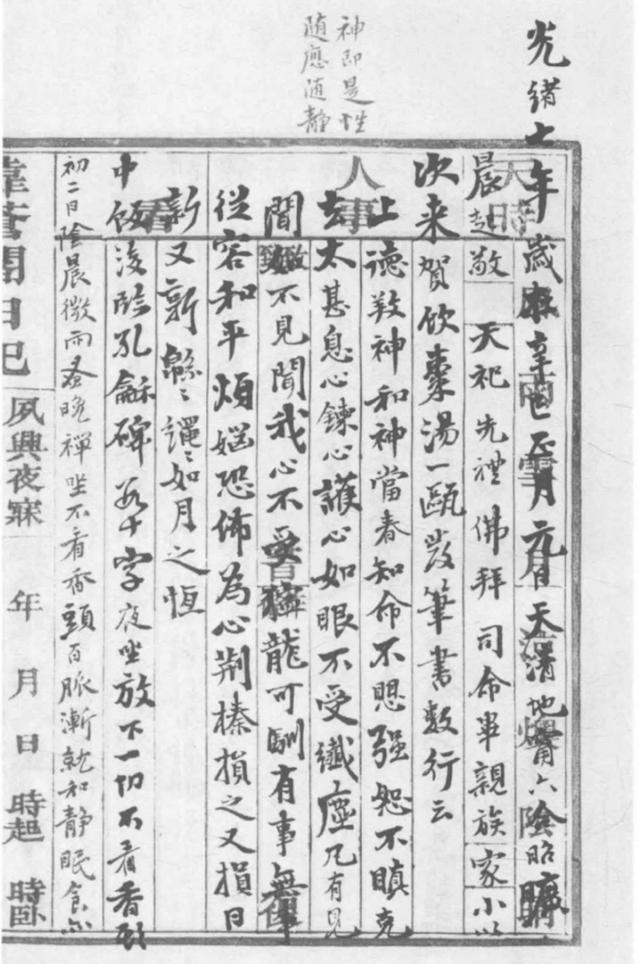 神即是性
随應随静
光緒七年歲在辛巳正月元日天清地甯六陰昭曠
晨起敬天祀先禮佛拜司命畢親族家小以
次来賀飲棗湯一甌發筆書數行云
上德敦神和神當春知命不思强恕不瞋克
去太甚息心鍊心護心如眼不受纖塵凡有見
聞如不見聞我心不受獰龍可馴有事無事
從容和平煩惱恐怖為心荆榛損之又損日
新又新緜緜繩繩如月之恆
中飯後臨孔龢碑卅字夜坐放下一切不看香
初二日陰晨微雨蚤晚禪坐不看香頭百脈漸就和静眠食
日記
夙興夜寐
年
月
日
時起
時卧
天時
人事